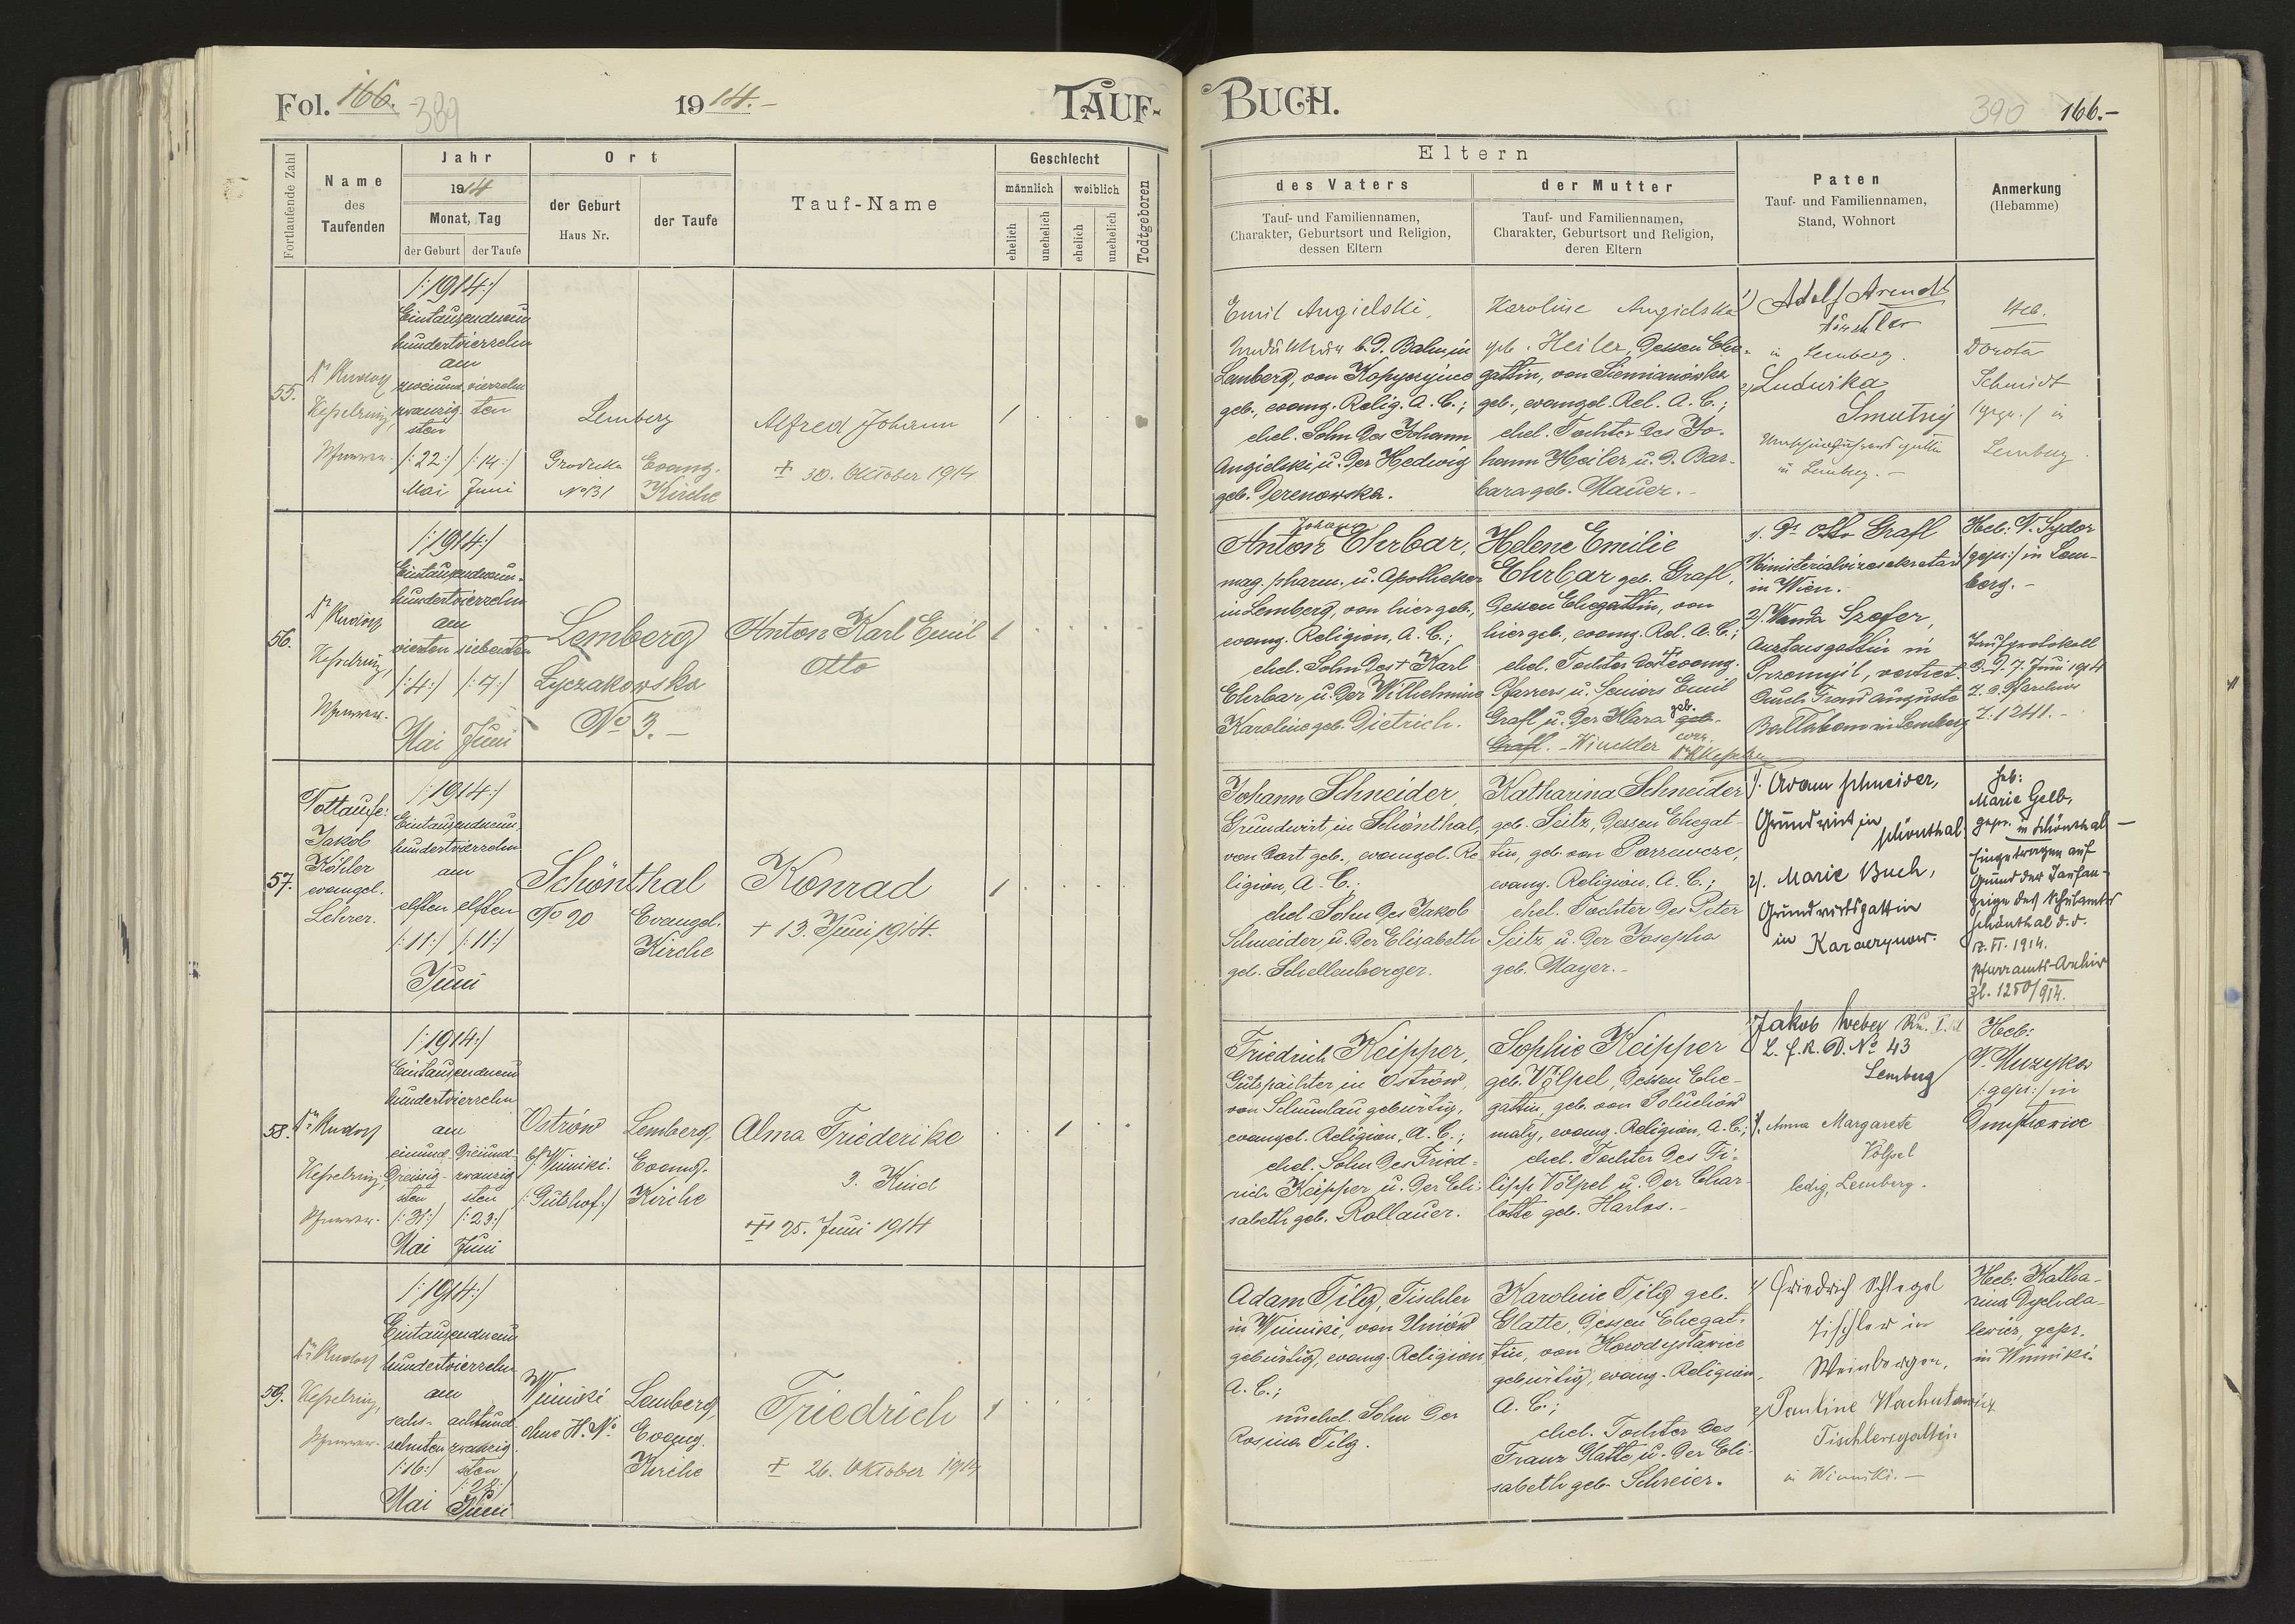 Fol. 166. 389
1914.-
TAUF-
Fortlaufende Zahl
Name
des
Taufenden
Jahr
1914
Monat, Tag
der Geburt
der Taufe
Ort
der Geburt
Haus Nr.
der Taufe
Tauf-Name
Geschlecht
männlich
weiblich
ehelich
unehelich
ehelich
unehelich
Todtgeboren
55.
Dr Rudolf
Kesselring,
Pfarrer.
/:1914:/
Eintausendneun
hundertvierzehn
am
zweiund
zwanzig
sten
/:22:/
Mai
vierzehn
ten
/:14:/
Juni
Lemberg
Grodecka
No 131
Evang.
Kirche
Alfred Johann
+ 30. Oktober 1914
1
56.
Dr Rudolf
Kesselring,
Pfarrer.
/:1914:/
Eintausendneun-
hundertvierzehn
am
vierten siebenten
/:4:/ /:7:/
Mai Juni
Lemberg
Lyczakowska
No 3.-
Anton Karl Emil
Otto
1
57.
Nottaufe:
Jakob
Köhler
evangel.
Lehrer.
/:1914:/
Eintausendneun
hundertvierzehn
am
elften elften
/:11:/ /:11:/
Juni
Schönthal
No 20
Evangel.
Kirche
Konrad
+ 13. Juni 1914.
1
58.
Dr Rudolf
Kesselring,
Pfarrer.
/:1914:/
Eintausendneun
hundertvierzehn
am
einund
dreissig-
sten
/:31:/
Mai
dreiund-
zwanzig
sten
/:23:/
Juni
Ostrów
b/ Winniki.
/:Gutshof:/
Lemberg,
Evang.
Kirche
Alma Friederike
3. Kind
25. Juni 1914
1
59.
Dr Rudolf
Kesselring,
Pfarrer.
/:1914:/
Eintausendneun
hundertvierzehn
am
sechs-
zehnten
/:16:/
Mai
achtund
zwanzig-
sten
/:28:/
Juni
Winniki
ohne H. No
Lemberg,
Evang.
Kirche
Friedrich
+ 26. Oktober 1914
1
BUCH.
390 166.-
Eltern
des Vaters
Tauf- und Familiennamen,
Charakter, Geburtsort und Religion,
dessen Eltern
der Mutter
Tauf- und Familiennamen,
Charakter, Geburtsort und Religion,
deren Eltern
Paten
Tauf- und Familiennamen,
Stand, Wohnort
Anmerkung
(Hebamme)
Emil Angielski,
b. d. Bahn in
Lemberg, von Kopyczyńce
geb., evang. Relig. A. C.;
ehel. Sohn des Johann
Angielski, u. der Hedwig
geb. Derenowska.
Karoline Angielska
geb. Heiler, dessen Ehe-
gattin, von Siemianówka
geb., evangel. Rel. A. C.;
ehel. Tochter des Jo-
hann Heiler u. d. Bar-
bara geb. Mauer.-
1) Adolf Arendt
Tischler
in Lemberg.
2) Ludwika
Smutny
in Lemberg.-
Heb.
Dorota
Schmidt
/gepr./ in
Lemberg.
Johann
Anton Ehrbar,
mag. pharm. u. Apotheker
in Lemberg, von hier geb.,
evang. Religion, A. C.;
ehel. Sohn des + Karl
Ehrbar u. der Wilhelmine
Karoline geb. Dietrich.
Helene Emilie
Ehrbar geb. Grafl,
dessen Ehegattin, von
hier geb., evang. Rel. A. C.;
ehel. Tochter des + evang.
Pfarrers u. Seniors Emil
Grafl u. der Klara geb.
geb.
Grafl. - Winckler corr.
1. Dr Otto Grafl
Ministerialvizesekretär
in Wien.
2). Wanda Szefer,
Arztensgattin in
Przemyśl, vertret.
durch Frau Auguste
in Lemberg
Heb: N. Sydor
/gepr:/ in Lem-
berg.-
Taufprotokoll
d. d. 7. Juni 1914
Z. d. Pfarrarchivs
Z. 1241.-
Johann Schneider,
Grundwirt in Schönthal,
von dort geb., evangel. Re
ligion, A. C.;
ehel Sohn des Jakob
Schneider, u. der Elisabeth
geb. Schellenberger.
Katharina Schneider
geb. Seitz, dessen Ehegat-
tin, geb. von Porzewcze,
evang. Religion, A. C.;
ehel. Tochter des Peter
Seitz u. der Josepha
geb. Mayer.-
1). Adam Schneider,
Grundwirt in
Schönthal
2). Marie Buch,
Grundwirtsgattin
in Karaczynow.
Heb:
Marie Gelb,
gepr. in Schönthal-
Eingetragen auf
Grund der Taufan-
zeige des Schulamts
Schönthal d. d.
17. VI. 1914.
Pfarramts-Archiv
Zl. 1250/914.
Friedrich Keipper,
Gutspächter in Ostrów,
von Schumlau gebürtig,
evangel. Religion, A. C.;
ehel. Sohn des Fried-
rich Keipper u. der Eli-
sabeth geb. Rollauer.
Sophie Keipper
geb. Völpel, dessen Ehe-
gattin, geb. von Soluchów
maly, evang. Religion, A. C.;
ehel. Tochter des Fi-
lipp Völpel u. der Char-
lotte geb. Harlos.-
Jakob Weber
No 43
Lemberg
2). Anna Margarete
Völpel
ledig, Lemberg.
Heb:
N. Muzyka
/:gepr:/ in
Dmytrowice
Adam Filg, Tischler
in Winniki, von Uniów
gebürtig, evang. Religion
A. C.;
unehel. Sohn der
Rosina Filg.
Karoline Filg geb.
Glatte, dessen Ehegat-
tin, von Howodyslawice
gebürtig, evang. Religion,
A. C.;
ehel. Tochter des
Franz Glatte, u. der Eli-
sabeth geb. Schreier.
1) Friedrich Schlegel
Tischler in
Weinbergen,
2) Pauline Wachutowicz
Tischlersgattin
in Winniki.-
Heb: Katha-
rina Dychda-
lewicz, gepr.
in Winniki.